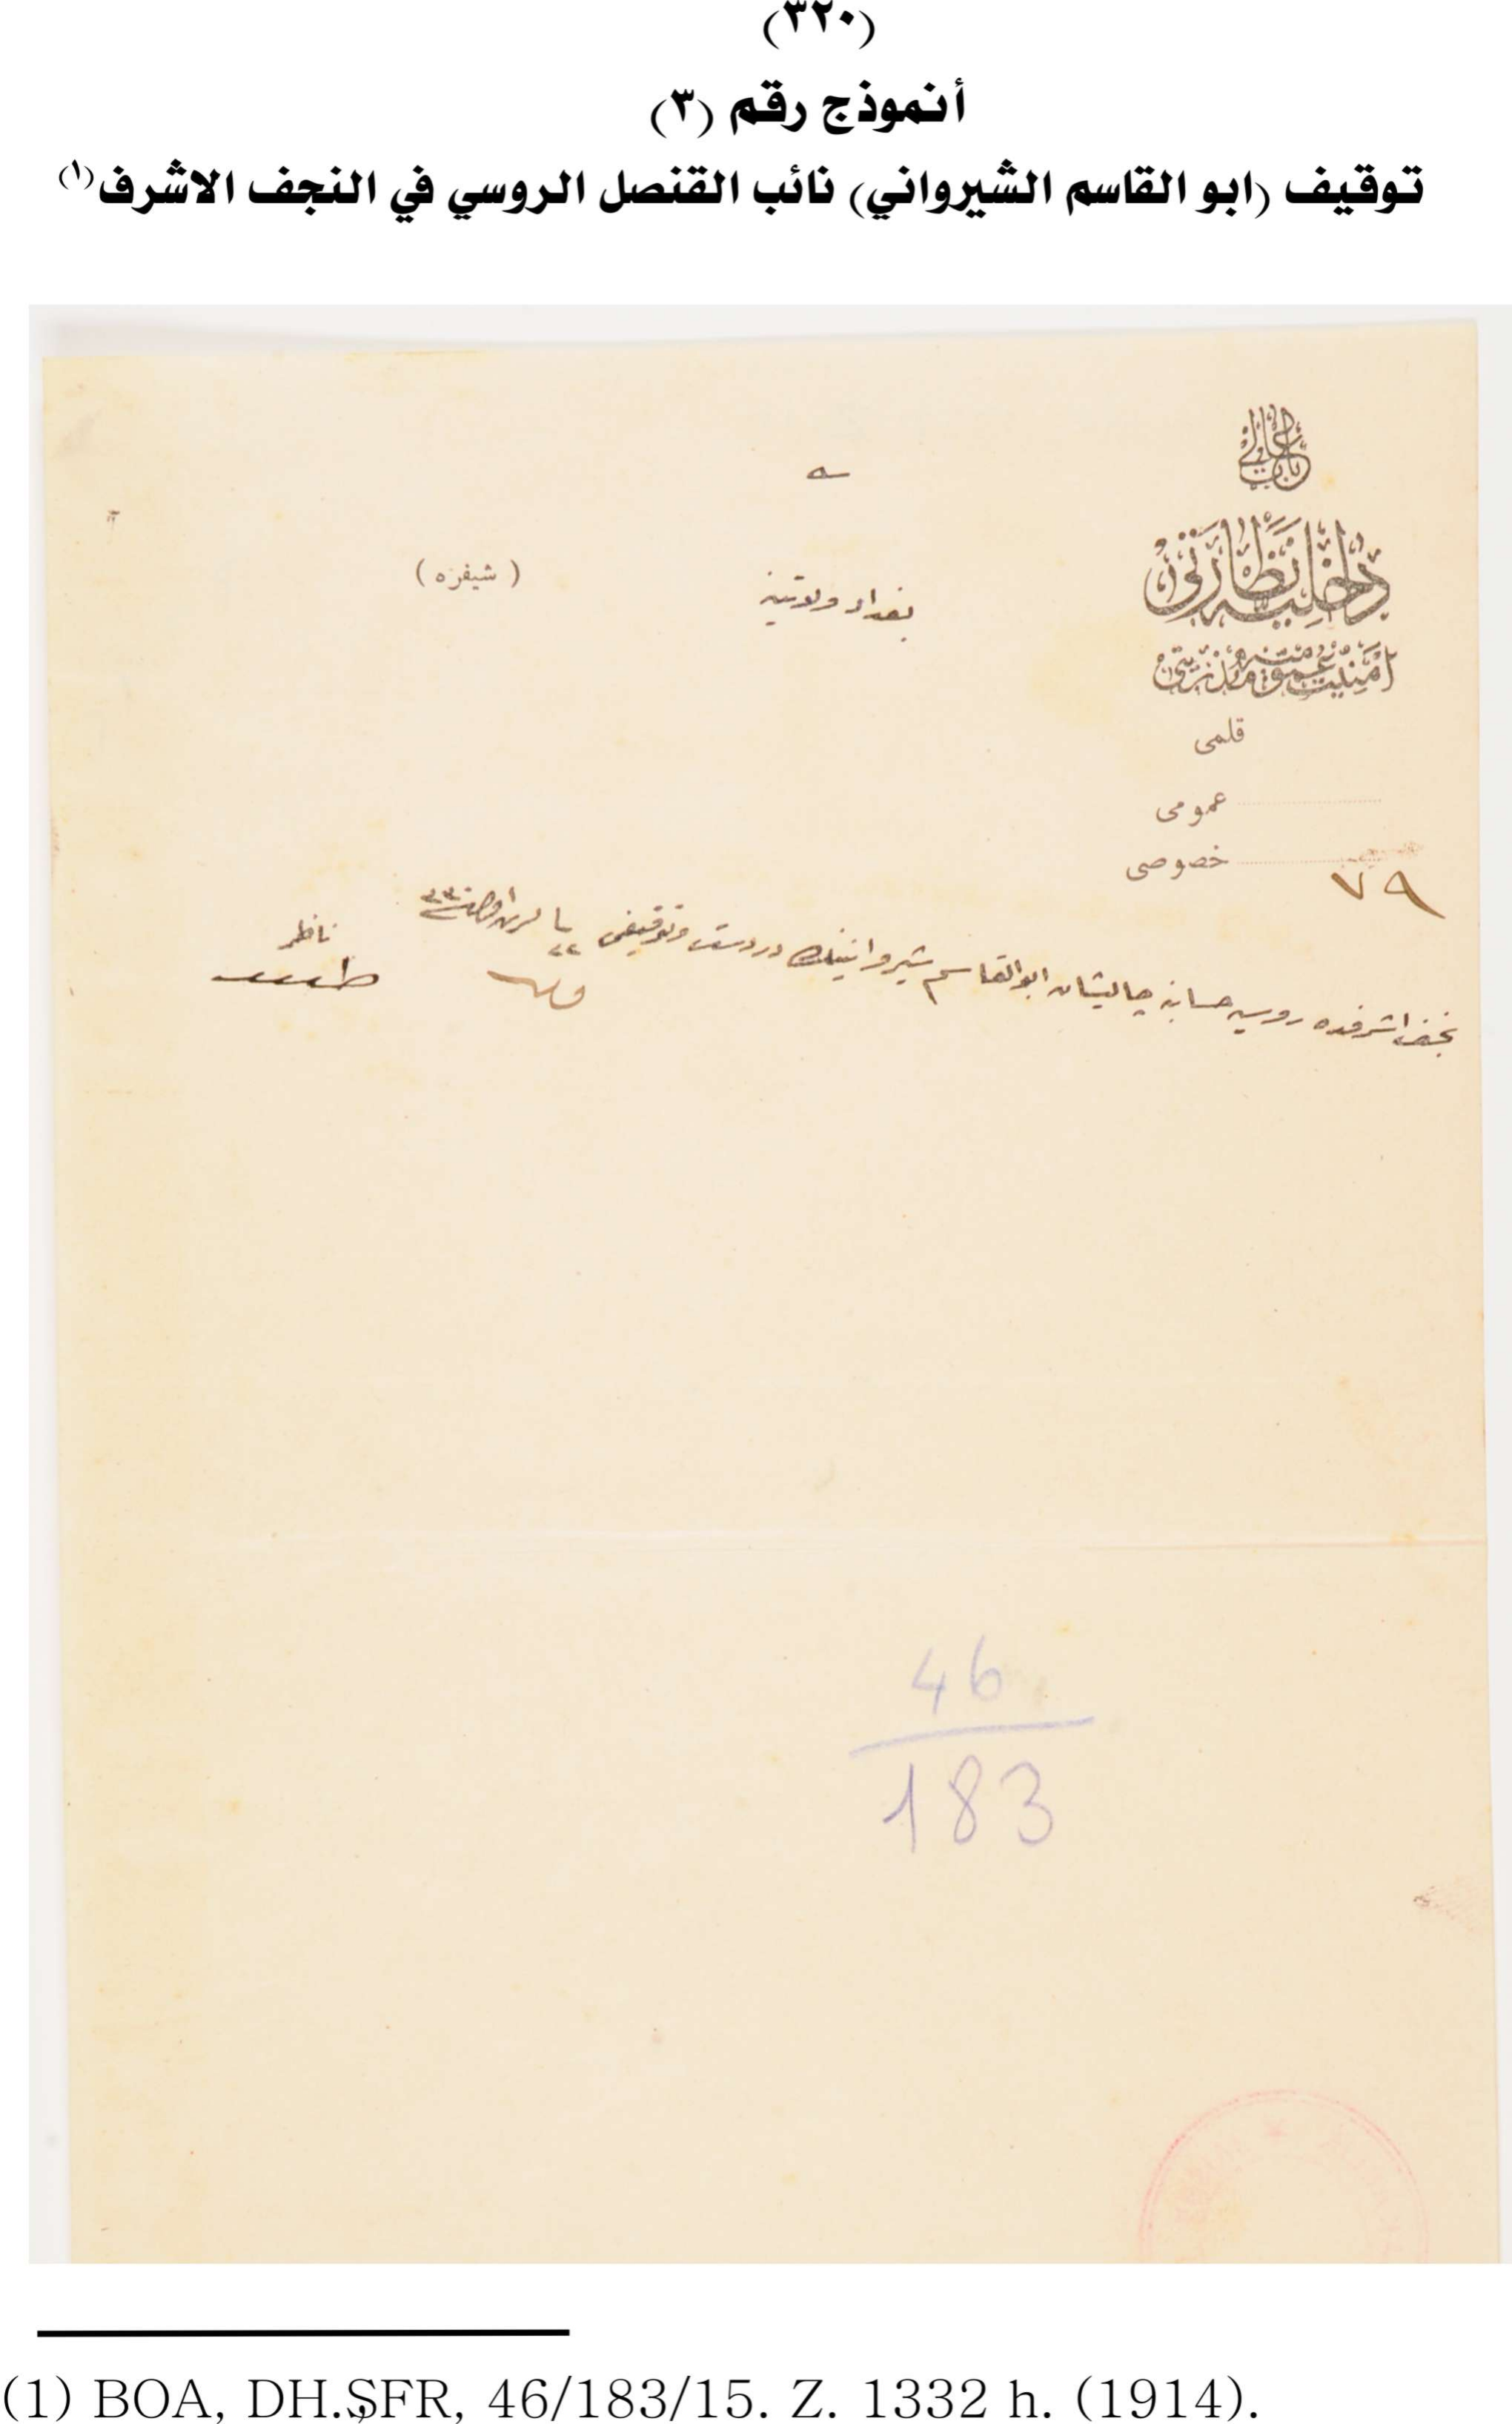 (٣٢٠)
أنموذج رقم (٣)
توقيف (ابو القاسم الشيرواني) نائب القنصل الروسي في النجف الاشرف(١)
باب عالی
داخلیه نظارتی
امنیت عمومیه مدیریتی
قلمی
عمومی
خصوصی
٧٩
بغداد ولایتنه
(شیفره)
نجف اشرفده روسیه حسابنه چالیشان ابوالقاسم شیروانینك دردست وتوقیفی
ناظر
طلعت
46
183
(1) BOA, DH.ŞFR, 46/183/15. Z. 1332 h. (1914).